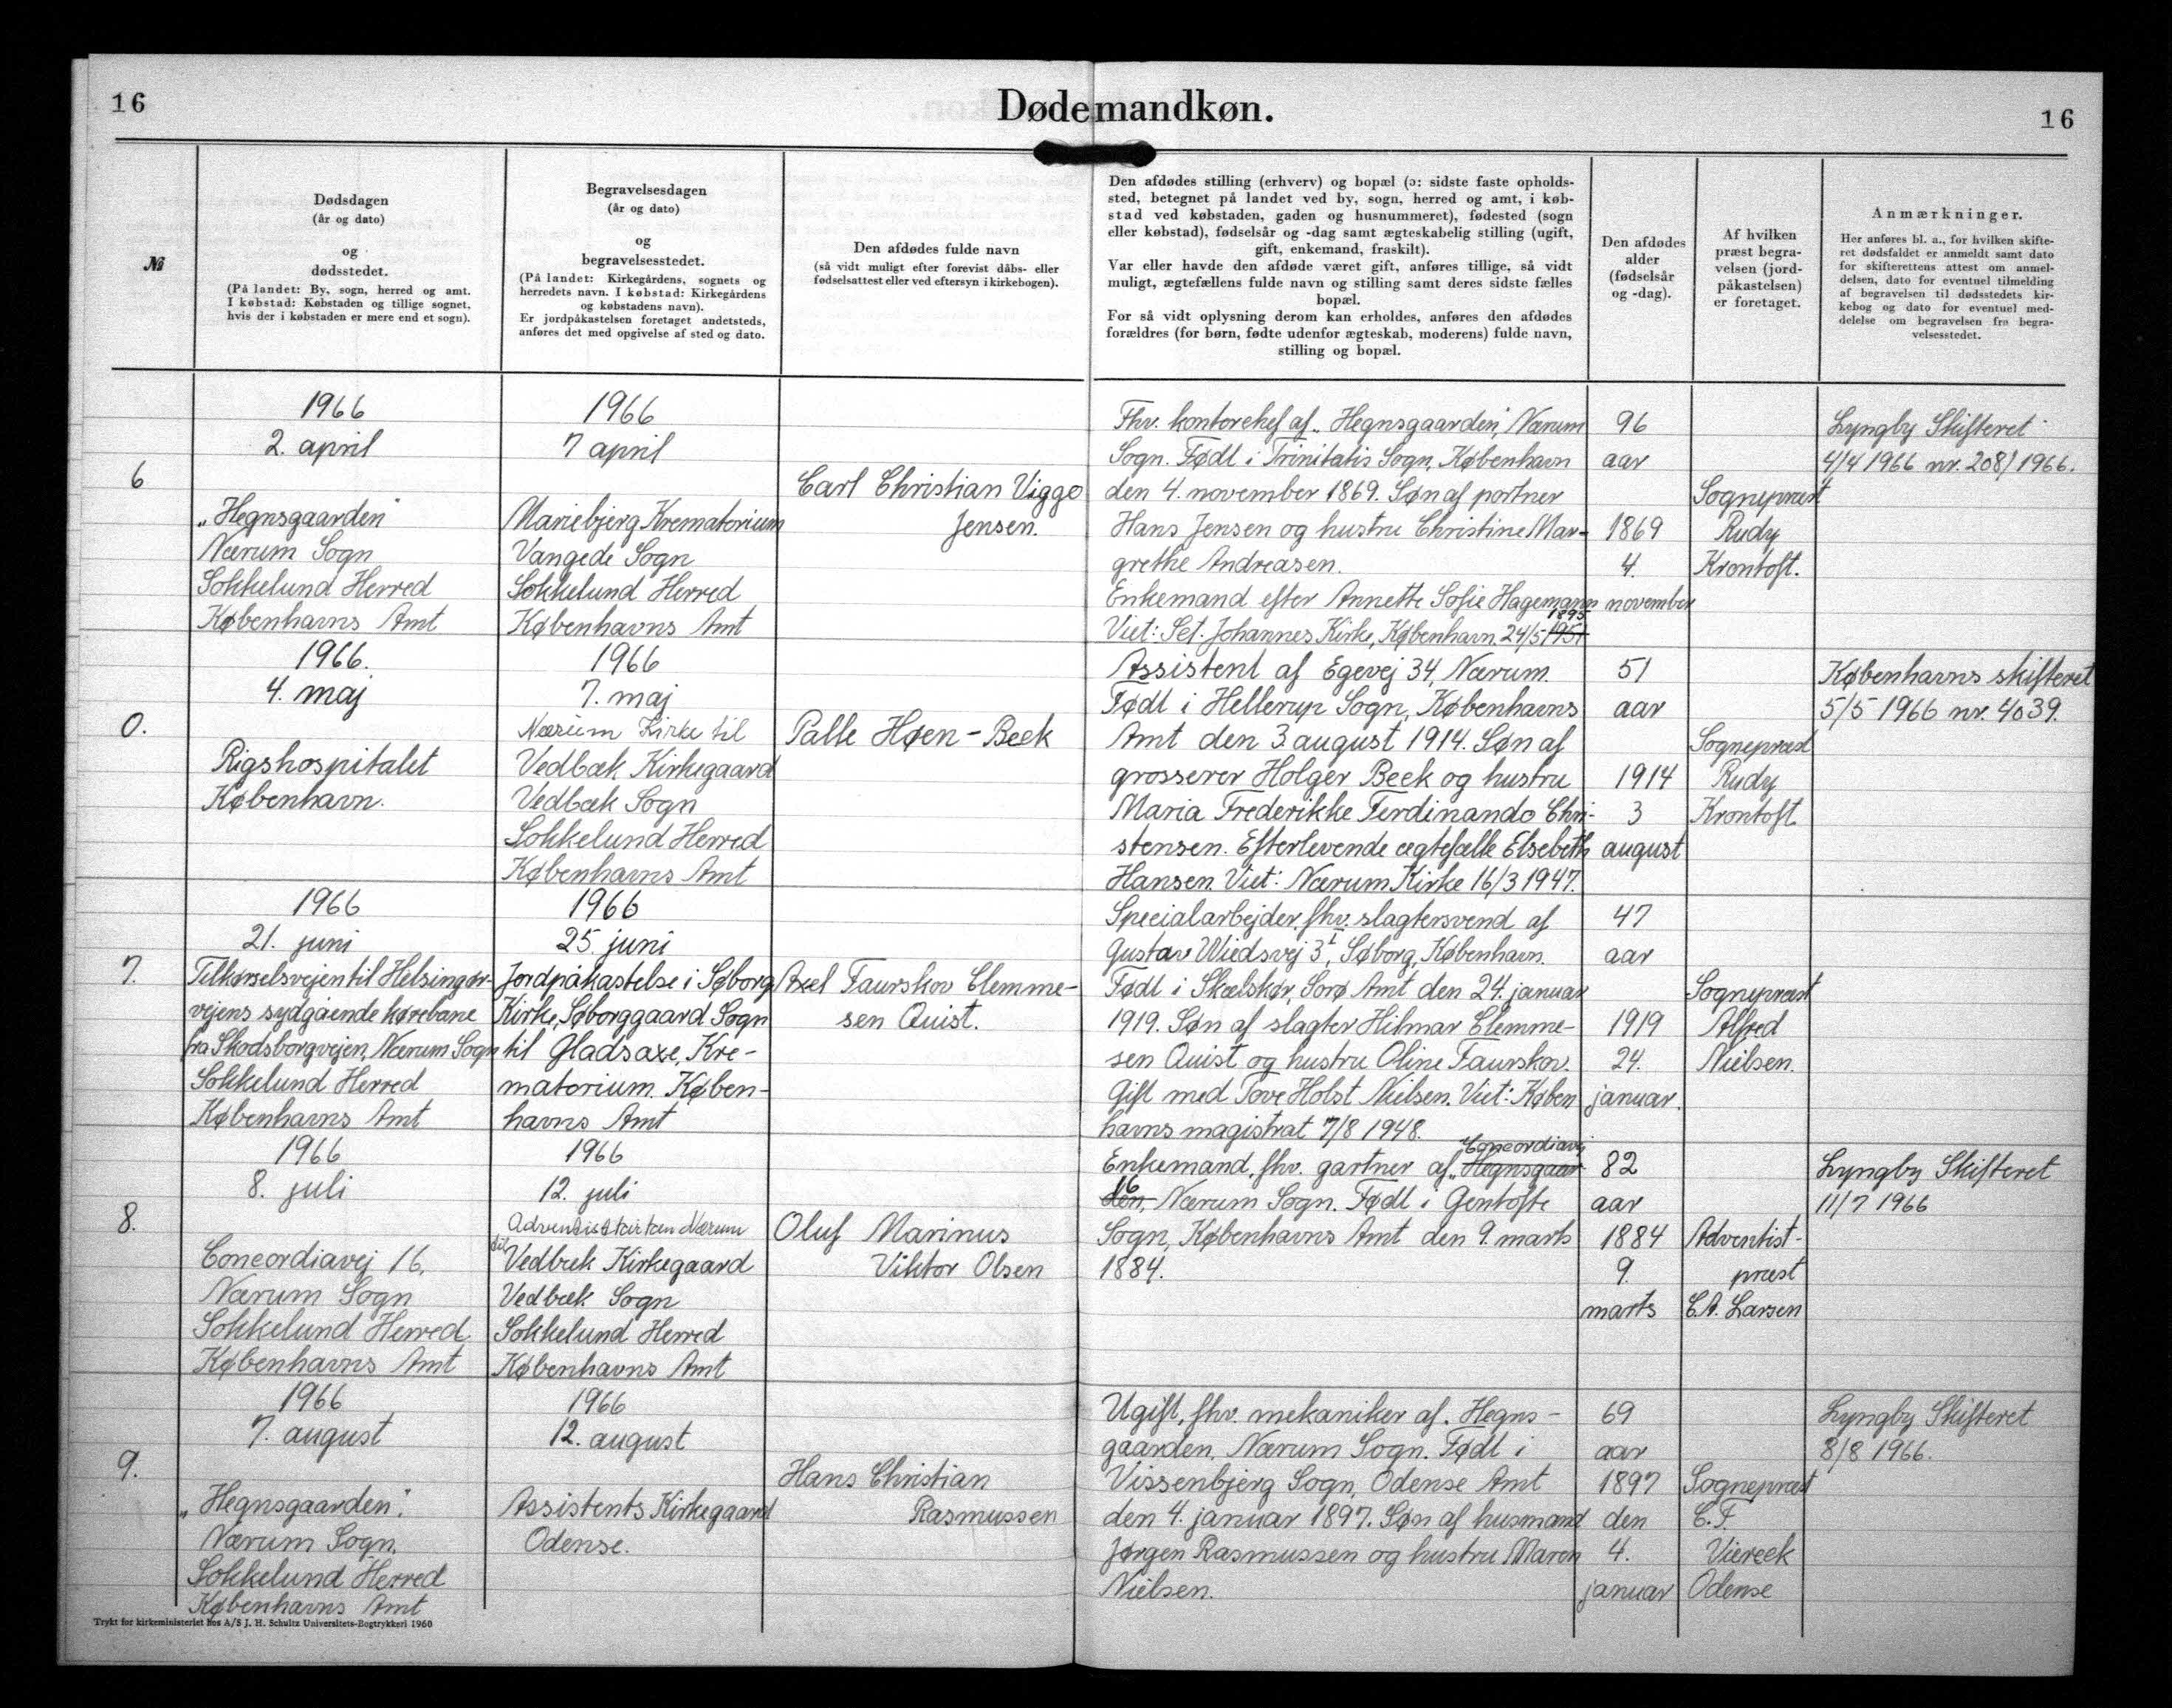 16
Døde mandkøn.
16
№
Dødsdagen
(år og dato)
og
dødsstedet.
(På landet: By, sogn, herred og amt.
I købstad: Købstaden og tillige sognet,
hvis der i købstaden er mere end et sogn).
Begravelsesdagen
(år og dato)
og
begravelsesstedet.
(På landet: Kirkegårdens, sognets og
herredets navn. I købstad: Kirkegårdens
og købstadens navn).
Er jordpåkastelsen foretaget andetsteds,
anføres det med opgivelse af sted og dato.
Den afdødes fulde navn
(så vidt muligt efter forevist dåbs- eller
fødselsattest eller ved eftersyn i kirkebogen).
Den afdødes stilling (erhverv) og bopæl (ɔ: sidste faste opholds-
sted, betegnet på landet ved by, sogn, herred og amt, i køb-
stad ved købstaden, gaden og husnummeret), fødested (sogn
eller købstad), fødselsår og -dag samt ægteskabelig stilling (ugift,
gift, enkemand, fraskilt).
Var eller havde den afdøde været gift, anføres tillige, så vidt
muligt, ægtefællens fulde navn og stilling samt deres sidste fælles
bopæl.
For så vidt oplysning derom kan erholdes, anføres den afdødes
forældres (for børn, fødte udenfor ægteskab, moderens) fulde navn,
stilling og bopæl.
Den afdødes
alder
(fødselsår
og -dag).
Af hvilken
præst begra-
velsen (jord-
påkastelsen)
er foretaget.
Anmærkninger.
Her anføres bl. a., for hvilken skifte-
ret dødsfaldet er anmeldt samt dato
for skifterettens attest om anmel-
delsen, dato for eventuel tilmelding
af begravelsen til dødsstedets kir-
kebog og dato for eventuel med-
delelse om begravelsen fra begra-
velsesstedet.
6
1966
2. april
"Hegnsgaarden"
Nærum Sogn
Sokkelund Herred
Københavns Amt
1966
7 april
Mariebjerg Krematorium
Vangede Sogn
Sokkelund Herred
Københavns Amt
Carl Christian Viggo
Jensen.
Fhv. kontorchef af "Hegnsgaarden", Nærum
Sogn. Født i Trinitatis Sogn, København
den 4. november 1869. Søn af portner
Hans Jensen og hustru Christine Mar-
grethe Andreasen.
Enkemand efter Annette Sofie Hagemann
1895
Viet: Sct. Johannes Kirke, København. 24/5 1951
96
aar
1869
4.
november
Sognepræst
Rudy
Krontoft.
Lyngby Skifteret
4/4 1966 nr. 208/1966.
0.
1966.
4. maj
Rigshospitalet
København.
1966
7. maj
Nærum Kirke til
Vedbæk Kirkegaard
Vedbæk Sogn
Sokkelund Herred
Københavns Amt
Palle Høen-Beck
Assistent af Egevej 34, Nærum.
Født i Hellerup Sogn, Københavns
Amt den 3. august 1914. Søn af
grosserer Holger Beck og hustru
Maria Frederikke Ferdinando Chri-
stensen. Efterlevende ægtefælle Elsebeth
Hansen. Viet: Nærum Kirke 16/3 1947.
51
aar
1914
3
august
Sognepræst
Rudy
Krontoft.
Københavns skifteret
5/5 1966 nr. 4039.
7.
1966
21. juni
Tilkørselsvejen til Helsingør-
vejens sydgående kørebane
fra Skodsborgvejen, Nærum Sogn
Sokkelund Herred
Københavns Amt
1966
25. juni
Jordpåkastelse i Søborg
Kirke, Søborggaard Sogn
til Gladsaxe, Kre-
matorium. Køben-
havns Amt
Axel Faurskov Clemme-
sen Quist.
Specialarbejder, fhv. slagtersvend af
Gustav Wiedsvej 3 I, Søborg, København.
Født i Skælskør, Sorø Amt den 24. januar
1919. Søn af slagter Hilmar Clemme-
sen Quist og hustru Oline Faurskov.
Gift med Tove Holst Nielsen. Viet: Køben
havns magistrat 7/8 1948.
47
aar
1919
24.
januar.
Sognepræst
Alfred
Nielsen.
8.
1966
8. juli
Concordiavej 16,
Nærum Sogn
Sokkelund Herred
Københavns Amt
1966
12. juli
Adventistkirken Nærum
til
Vedbæk Kirkegaard
Vedbæk Sogn
Sokkelund Herred
Københavns Amt
Oluf Marinus
Viktor Olsen
Concordiavej
Enkemand, fhv. gartner af "Hegnsgaar-
16
den", Nærum Sogn. Født i Gentofte
Sogn, Københavns Amt den 9. marts
1884.
82
aar
1884
9.
marts
Adventist-
præst
C.A. Larsen
Lyngby Skifteret
11/7 1966
9.
1966
7. august
"Hegnsgaarden".
Nærum Sogn.
Sokkelund Herred
Københavns Amt
1966
12. august
Assistents Kirkegaard
Odense.
Hans Christian
Rasmussen
Ugift, fhv. mekaniker af. Hegns-
gaarden, Nærum Sogn. Født i
Vissenbjerg Sogn, Odense Amt
den 4. januar 1897. Søn af husmand
Jørgen Rasmussen og hustru Maren
Nielsen.
69
aar
1897
den
4.
januar
Sognepræst
C.F.
Viereck
Odense
Lyngby Skifteret
8/8 1966.
Trykt for kirkeministeriet hos A/S J. H. Schultz Universitets-Bogtrykkeri 1960